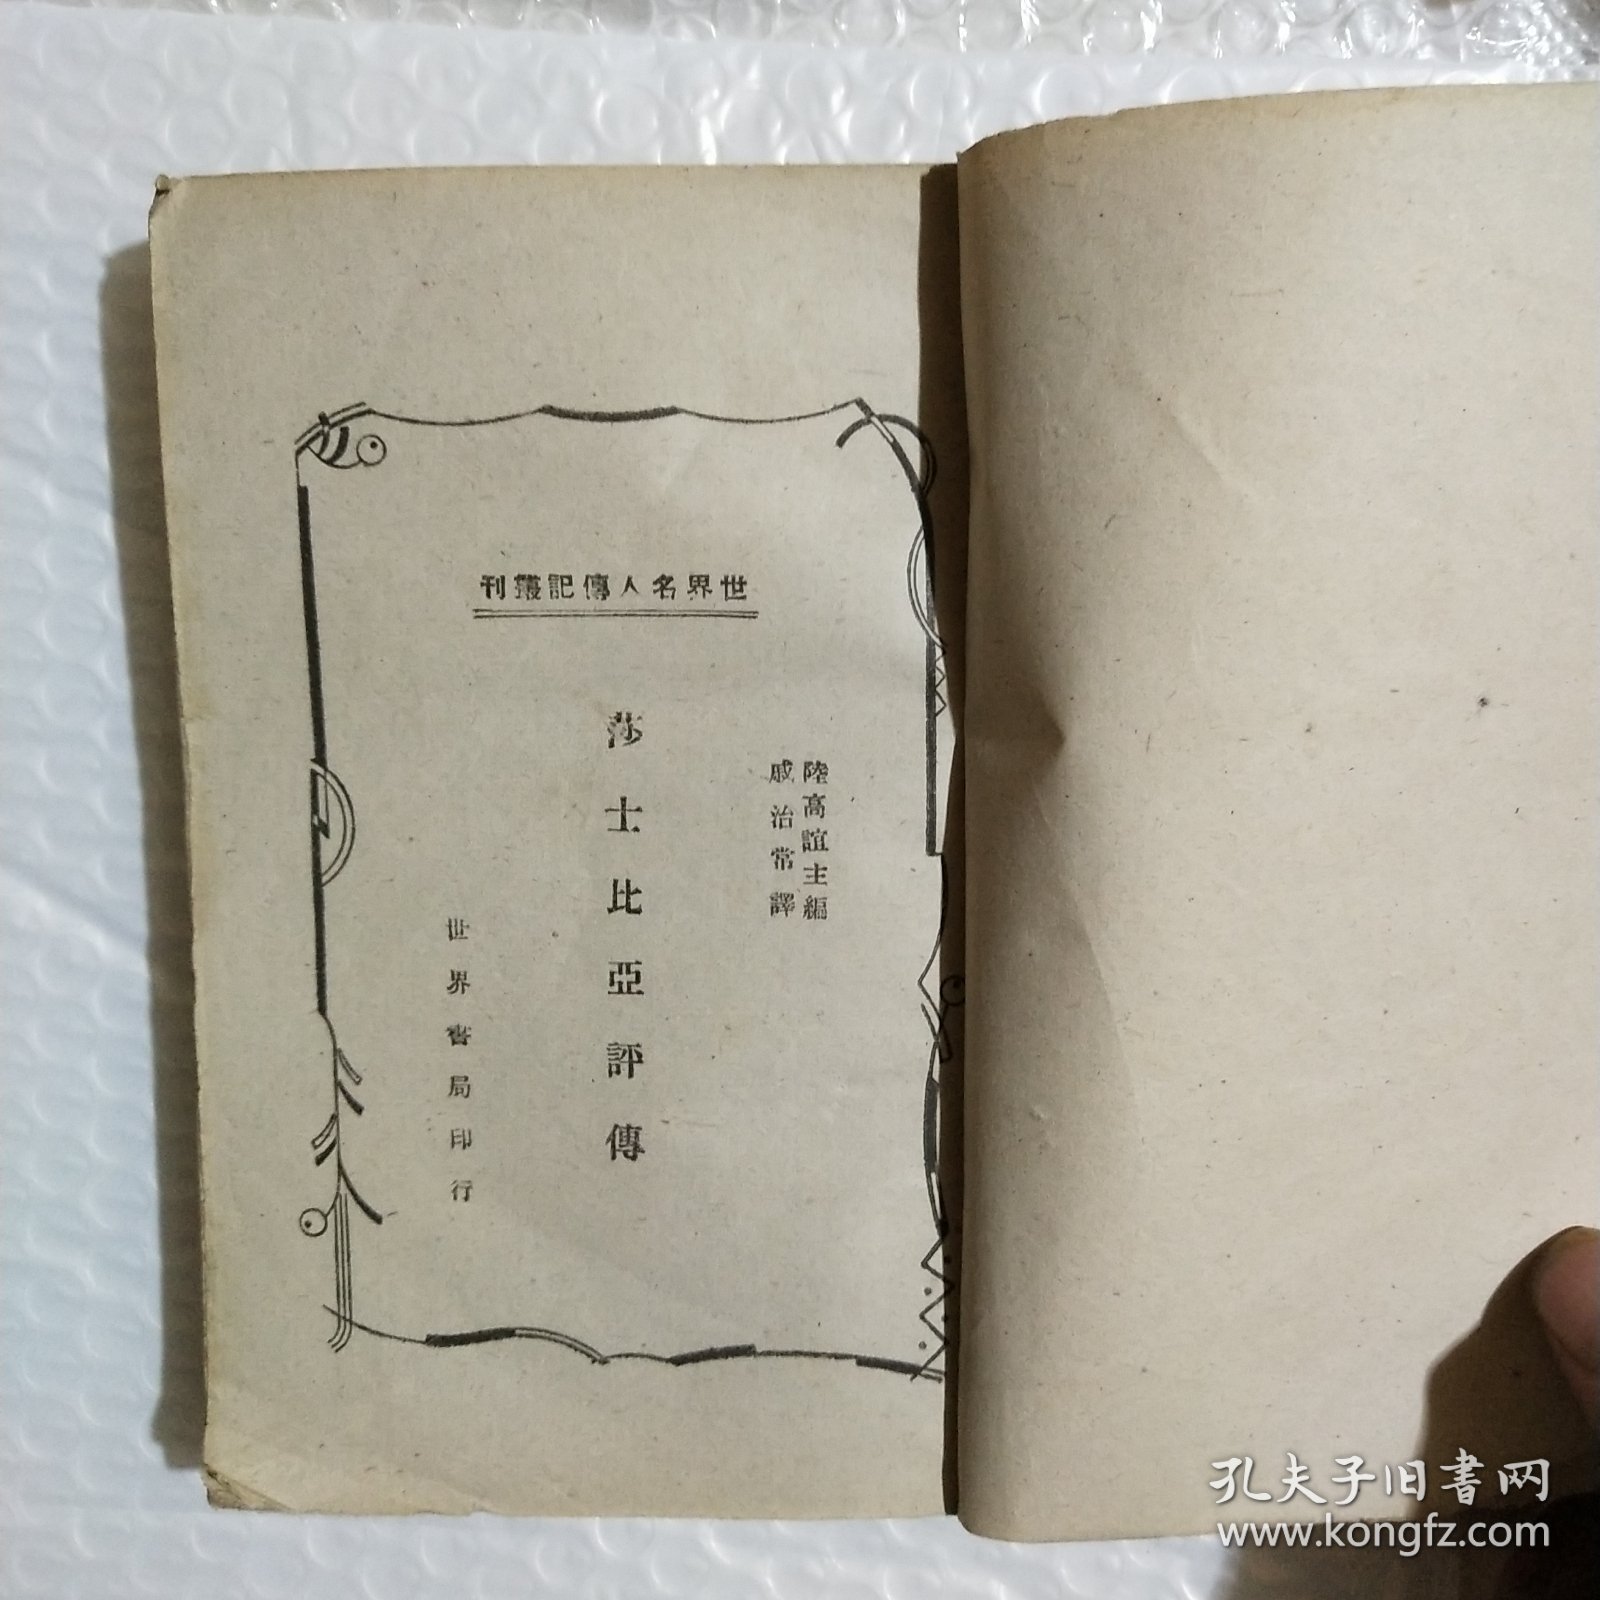 世界名人傳記叢刊
陸高誼主編
戚治常譯
莎士比亞評傳
世界書局印行
孔夫子旧書网
www.kongfz.com